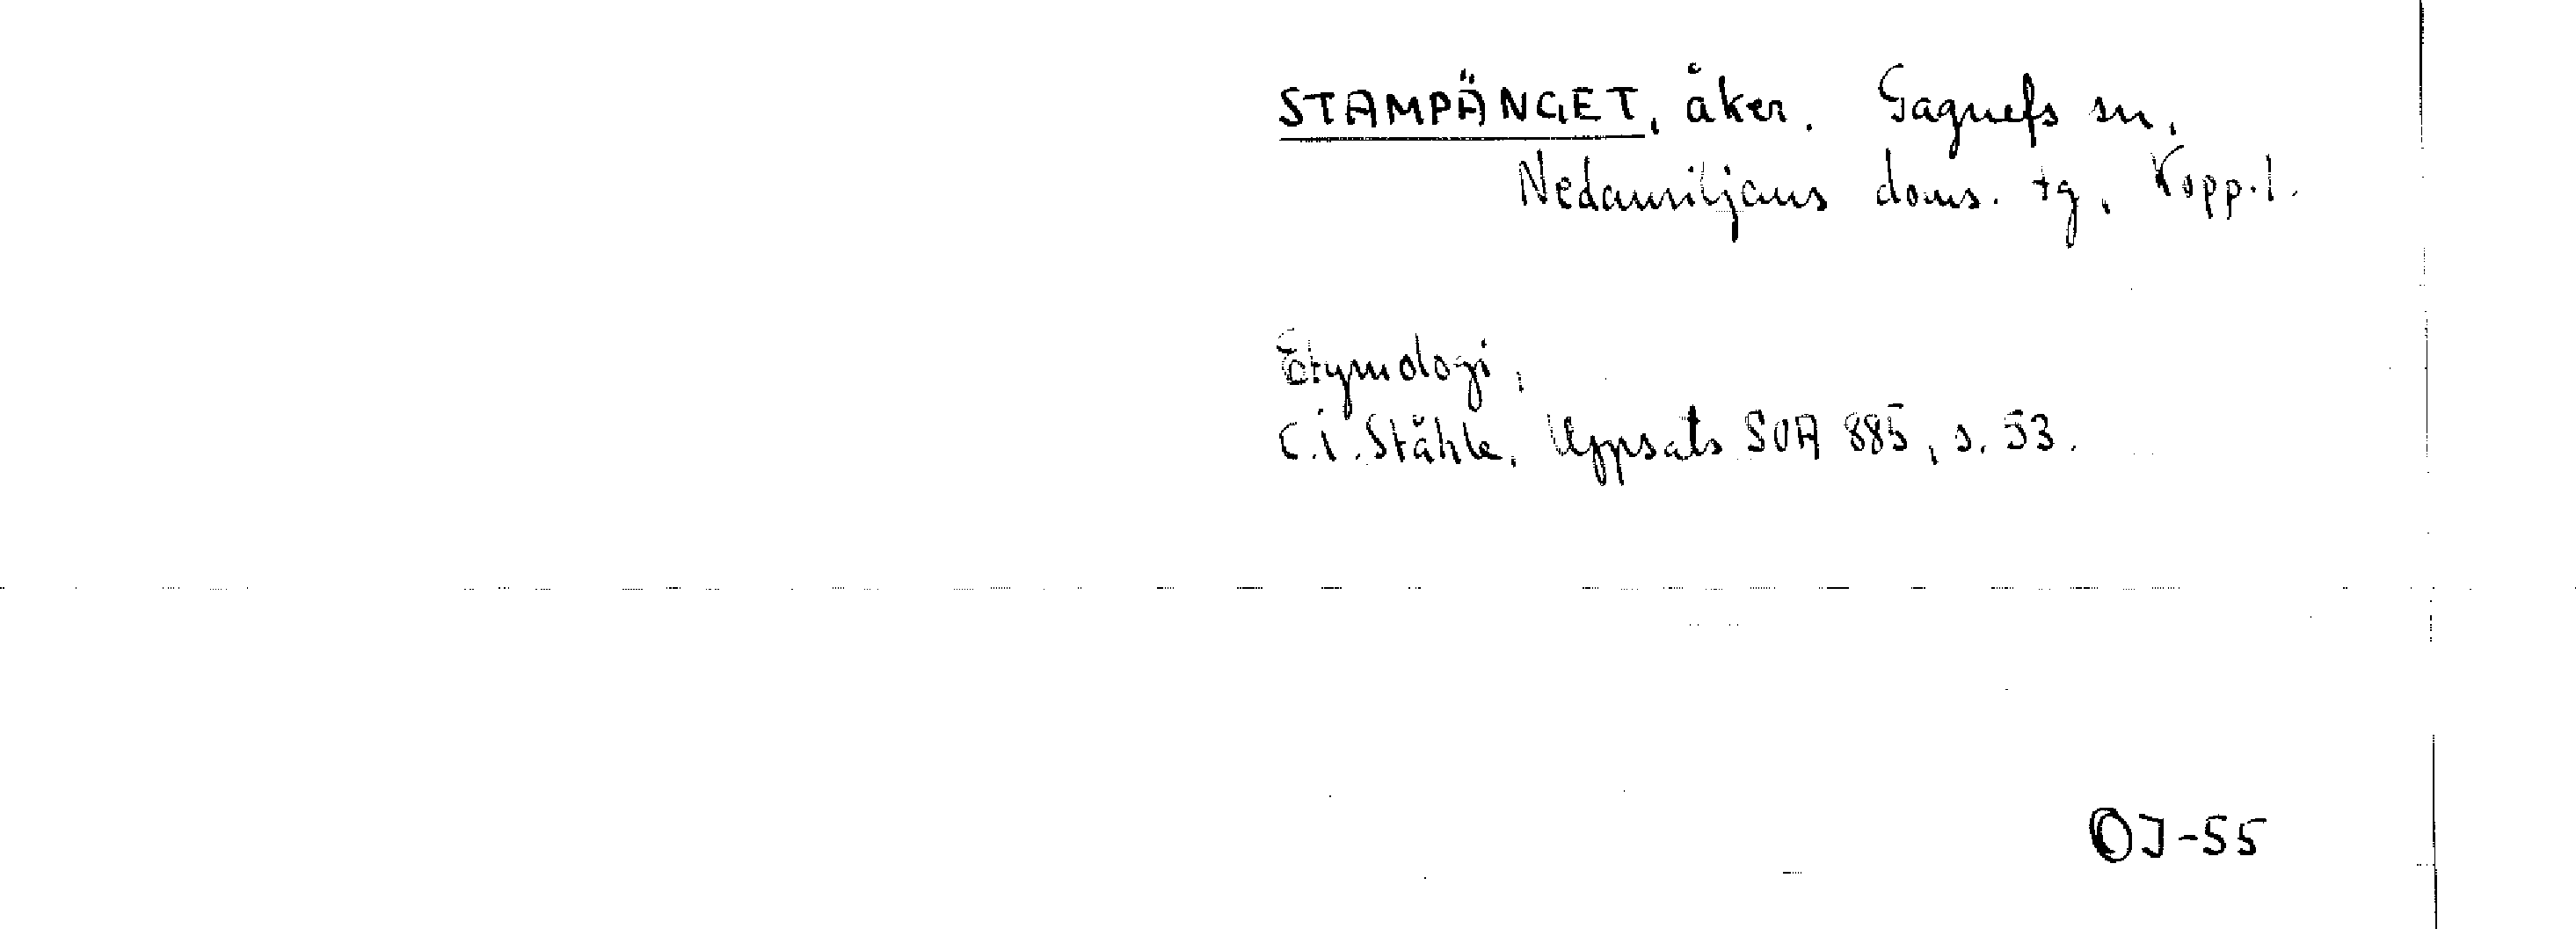 STAMPÄNGET, åker. Gagnefs sn,
Nedansiljans doms. tg, Kopp.l.
Etymologi,
C.I. Ståhle, Uppsats SOA 885, s. 53.
OJ-55